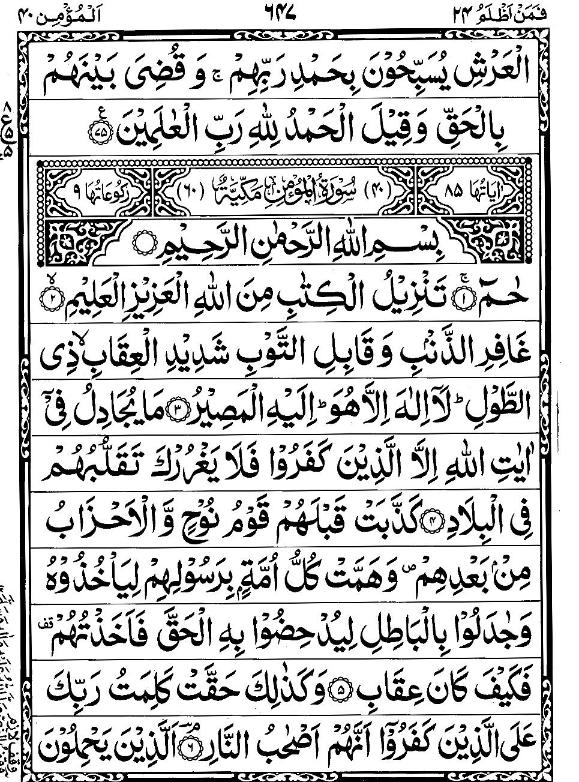 فَمَنْ اَظْلَمُ ٢٤ ٦٤٧ اَلْمُؤْمِن ٤٠
الْعَرْشِ يُسَبِّحُوْنَ بِحَمْدِ رَبِّهِمْ ۚ وَ قُضِىَ بَيْنَهُمْ
بِالْحَقِّ وَ قِيْلَ الْحَمْدُ لِلّٰهِ رَبِّ الْعٰلَمِيْنَ ﴿٧٥﴾
اٰيَاتُهَا ٨٥ (٤٠) سُوْرَةُ الْمُؤْمِنِ مَكِّيَّةٌ (٦٠) رُكُوْعَاتُهَا ٩
بِسْمِ اللّٰهِ الرَّحْمٰنِ الرَّحِيْمِ
حٰمٓ ﴿١﴾ تَنْزِيْلُ الْكِتٰبِ مِنَ اللّٰهِ الْعَزِيْزِ الْعَلِيْمِ ﴿٢﴾
غَافِرِ الذَّنْۢبِ وَ قَابِلِ التَّوْبِ شَدِيْدِ الْعِقَابِ ذِى
الطَّوْلِ ؕ لَاۤ اِلٰهَ اِلَّا هُوَ ؕ اِلَيْهِ الْمَصِيْرُ ﴿٣﴾ مَا يُجَادِلُ فِىْۤ
اٰيٰتِ اللّٰهِ اِلَّا الَّذِيْنَ كَفَرُوْا فَلَا يَغْرُرْكَ تَقَلُّبُهُمْ
فِى الْبِلَادِ ﴿٤﴾ كَذَّبَتْ قَبْلَهُمْ قَوْمُ نُوْحٍ وَّ الْاَحْزَابُ
مِنْۢ بَعْدِهِمْ ۪ وَ هَمَّتْ كُلُّ اُمَّةٍۭ بِرَسُوْلِهِمْ لِيَاْخُذُوْهُ
وَ جٰدَلُوْا بِالْبَاطِلِ لِيُدْحِضُوْا بِهِ الْحَقَّ فَاَخَذْتُهُمْ ۟
فَكَيْفَ كَانَ عِقَابِ ﴿٥﴾ وَ كَذٰلِكَ حَقَّتْ كَلِمَتُ رَبِّكَ
عَلَى الَّذِيْنَ كَفَرُوْۤا اَنَّهُمْ اَصْحٰبُ النَّارِ ﴿٦﴾ اَلَّذِيْنَ يَحْمِلُوْنَ